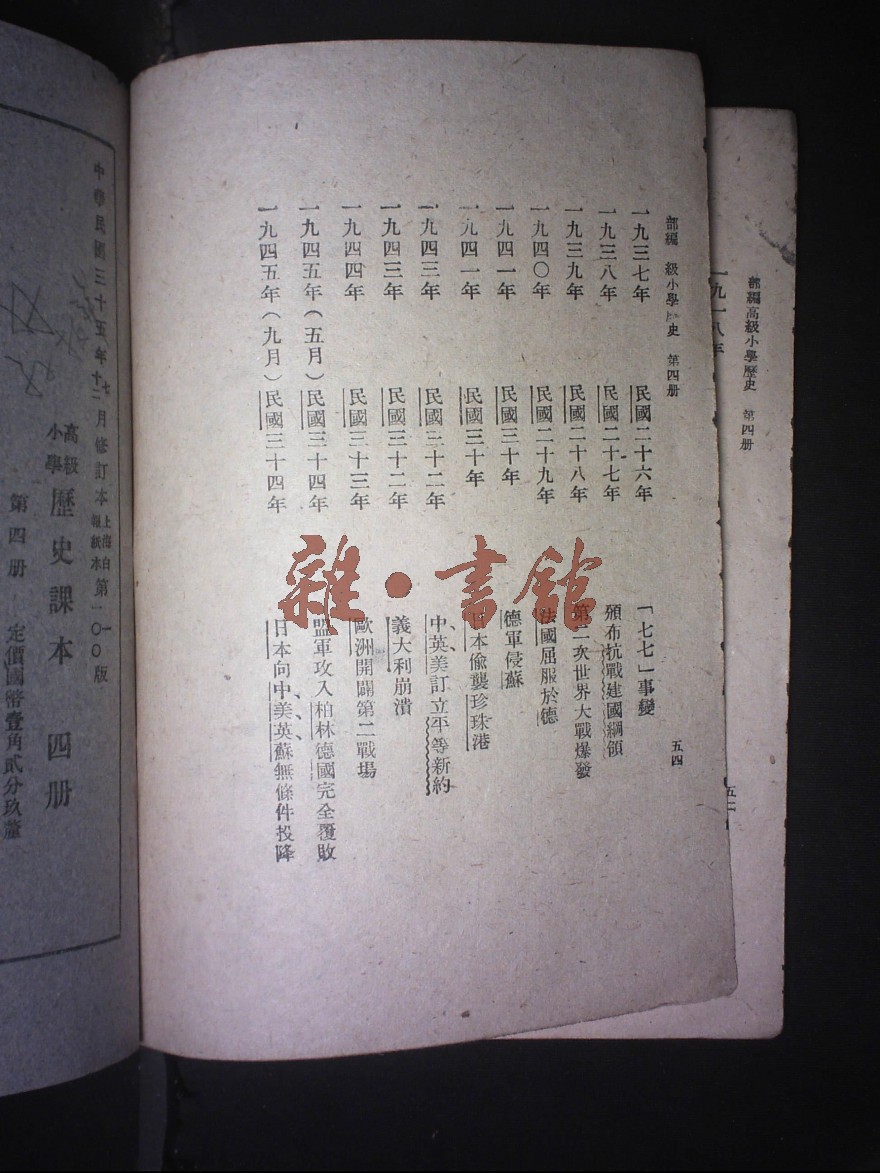 部編高級小學歷史 第四册
一九一八年
部編 級小學歷史 第四册 五四
一九三七年 民國二十六年 「七七」事變
一九三八年 民國二十七年 頒布抗戰建國綱領
一九三九年 民國二十八年 第二次世界大戰爆發
一九四〇年 民國二十九年 法國屈服於德
一九四一年 民國三十年 德軍侵蘇
一九四一年 民國三十年 日本偷襲珍珠港
一九四三年 民國三十二年 中、英、美訂立平等新約
一九四三年 民國三十二年 義大利崩潰
一九四四年 民國三十三年 歐洲開闢第二戰場
一九四五年(五月) 民國三十四年 盟軍攻入柏林德國完全覆敗
一九四五年(九月) 民國三十四年 日本向中、美、英、蘇無條件投降
雜·書館
中華民國三十五年十二七月修訂本上海白報紙本第一一〇〇版
高級小學歷史課本 四册
第四册 定價國幣壹角貳分玖釐